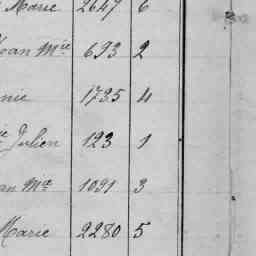 Marie 2647 6
Jean Mie 693 2
nie 1735 4
ie Julien 123 1
an Me 1091 3
Marie 2280 5